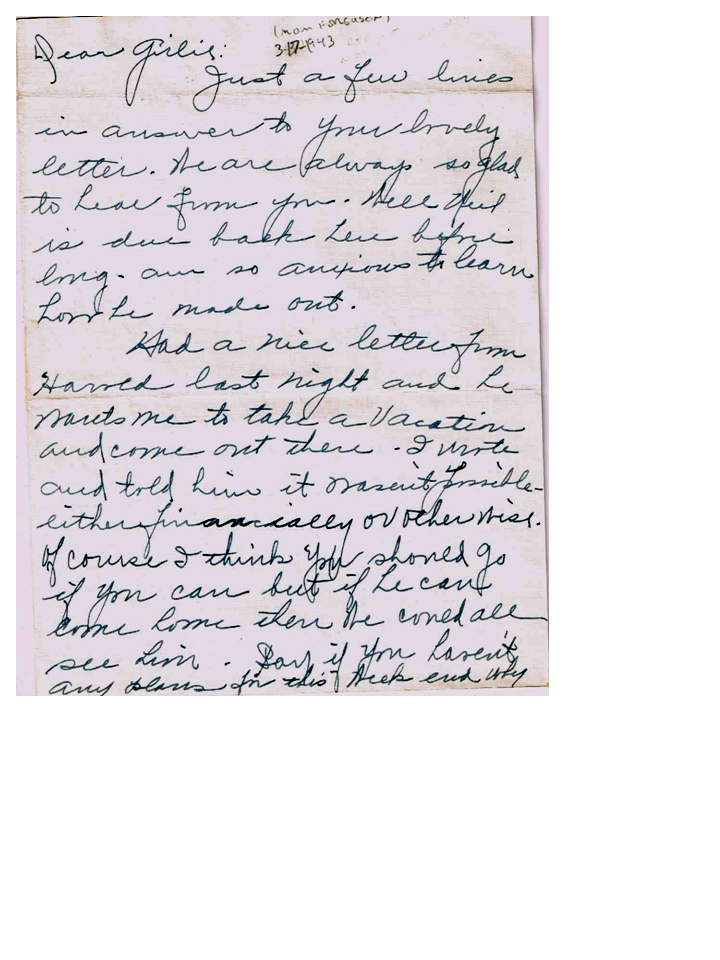 (Mom Ferguson)
3-17-1943
Dear Girlie:
Just a few lines
in answer to your lovely
letter. We are always so glad
to hear from you. Well Neil
is due back here before
long. am so anxious to learn
how he made out.
Had a nice letter from
Harred last night and he
wants me to take a Vacation
and come out there. I wrote
and told him it wasen't possible
either financially or other wise.
Of course I think you should go
if you can but if he can
come home then we could all
see him. Say if you haven't
any plans for this week end why